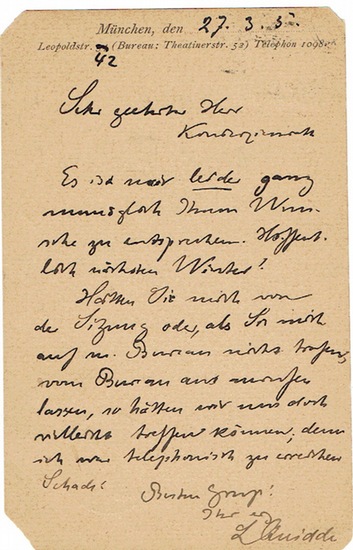 München, den 27. 3. 5.
Leopoldstr. 42 (Bureau: Theatinerstr. 52) Telephon 1098.
Sehr geehrter Herr
Es ist mir leider ganz
unmöglich Ihrem Wun-
sche zu entsprechen. Hoffent-
lich nächsten Winter!
Hätten Sie mich von
der Sitzung oder, als Sie mich
auf m. Bureau nicht trafen,
vom Bureau aus anrufen
lassen, so hätten wir uns doch
vielleicht treffen können, denn
ich war telephonisch zu erreichen
Schade!
Besten Gruß!
Ihr
L Quidde